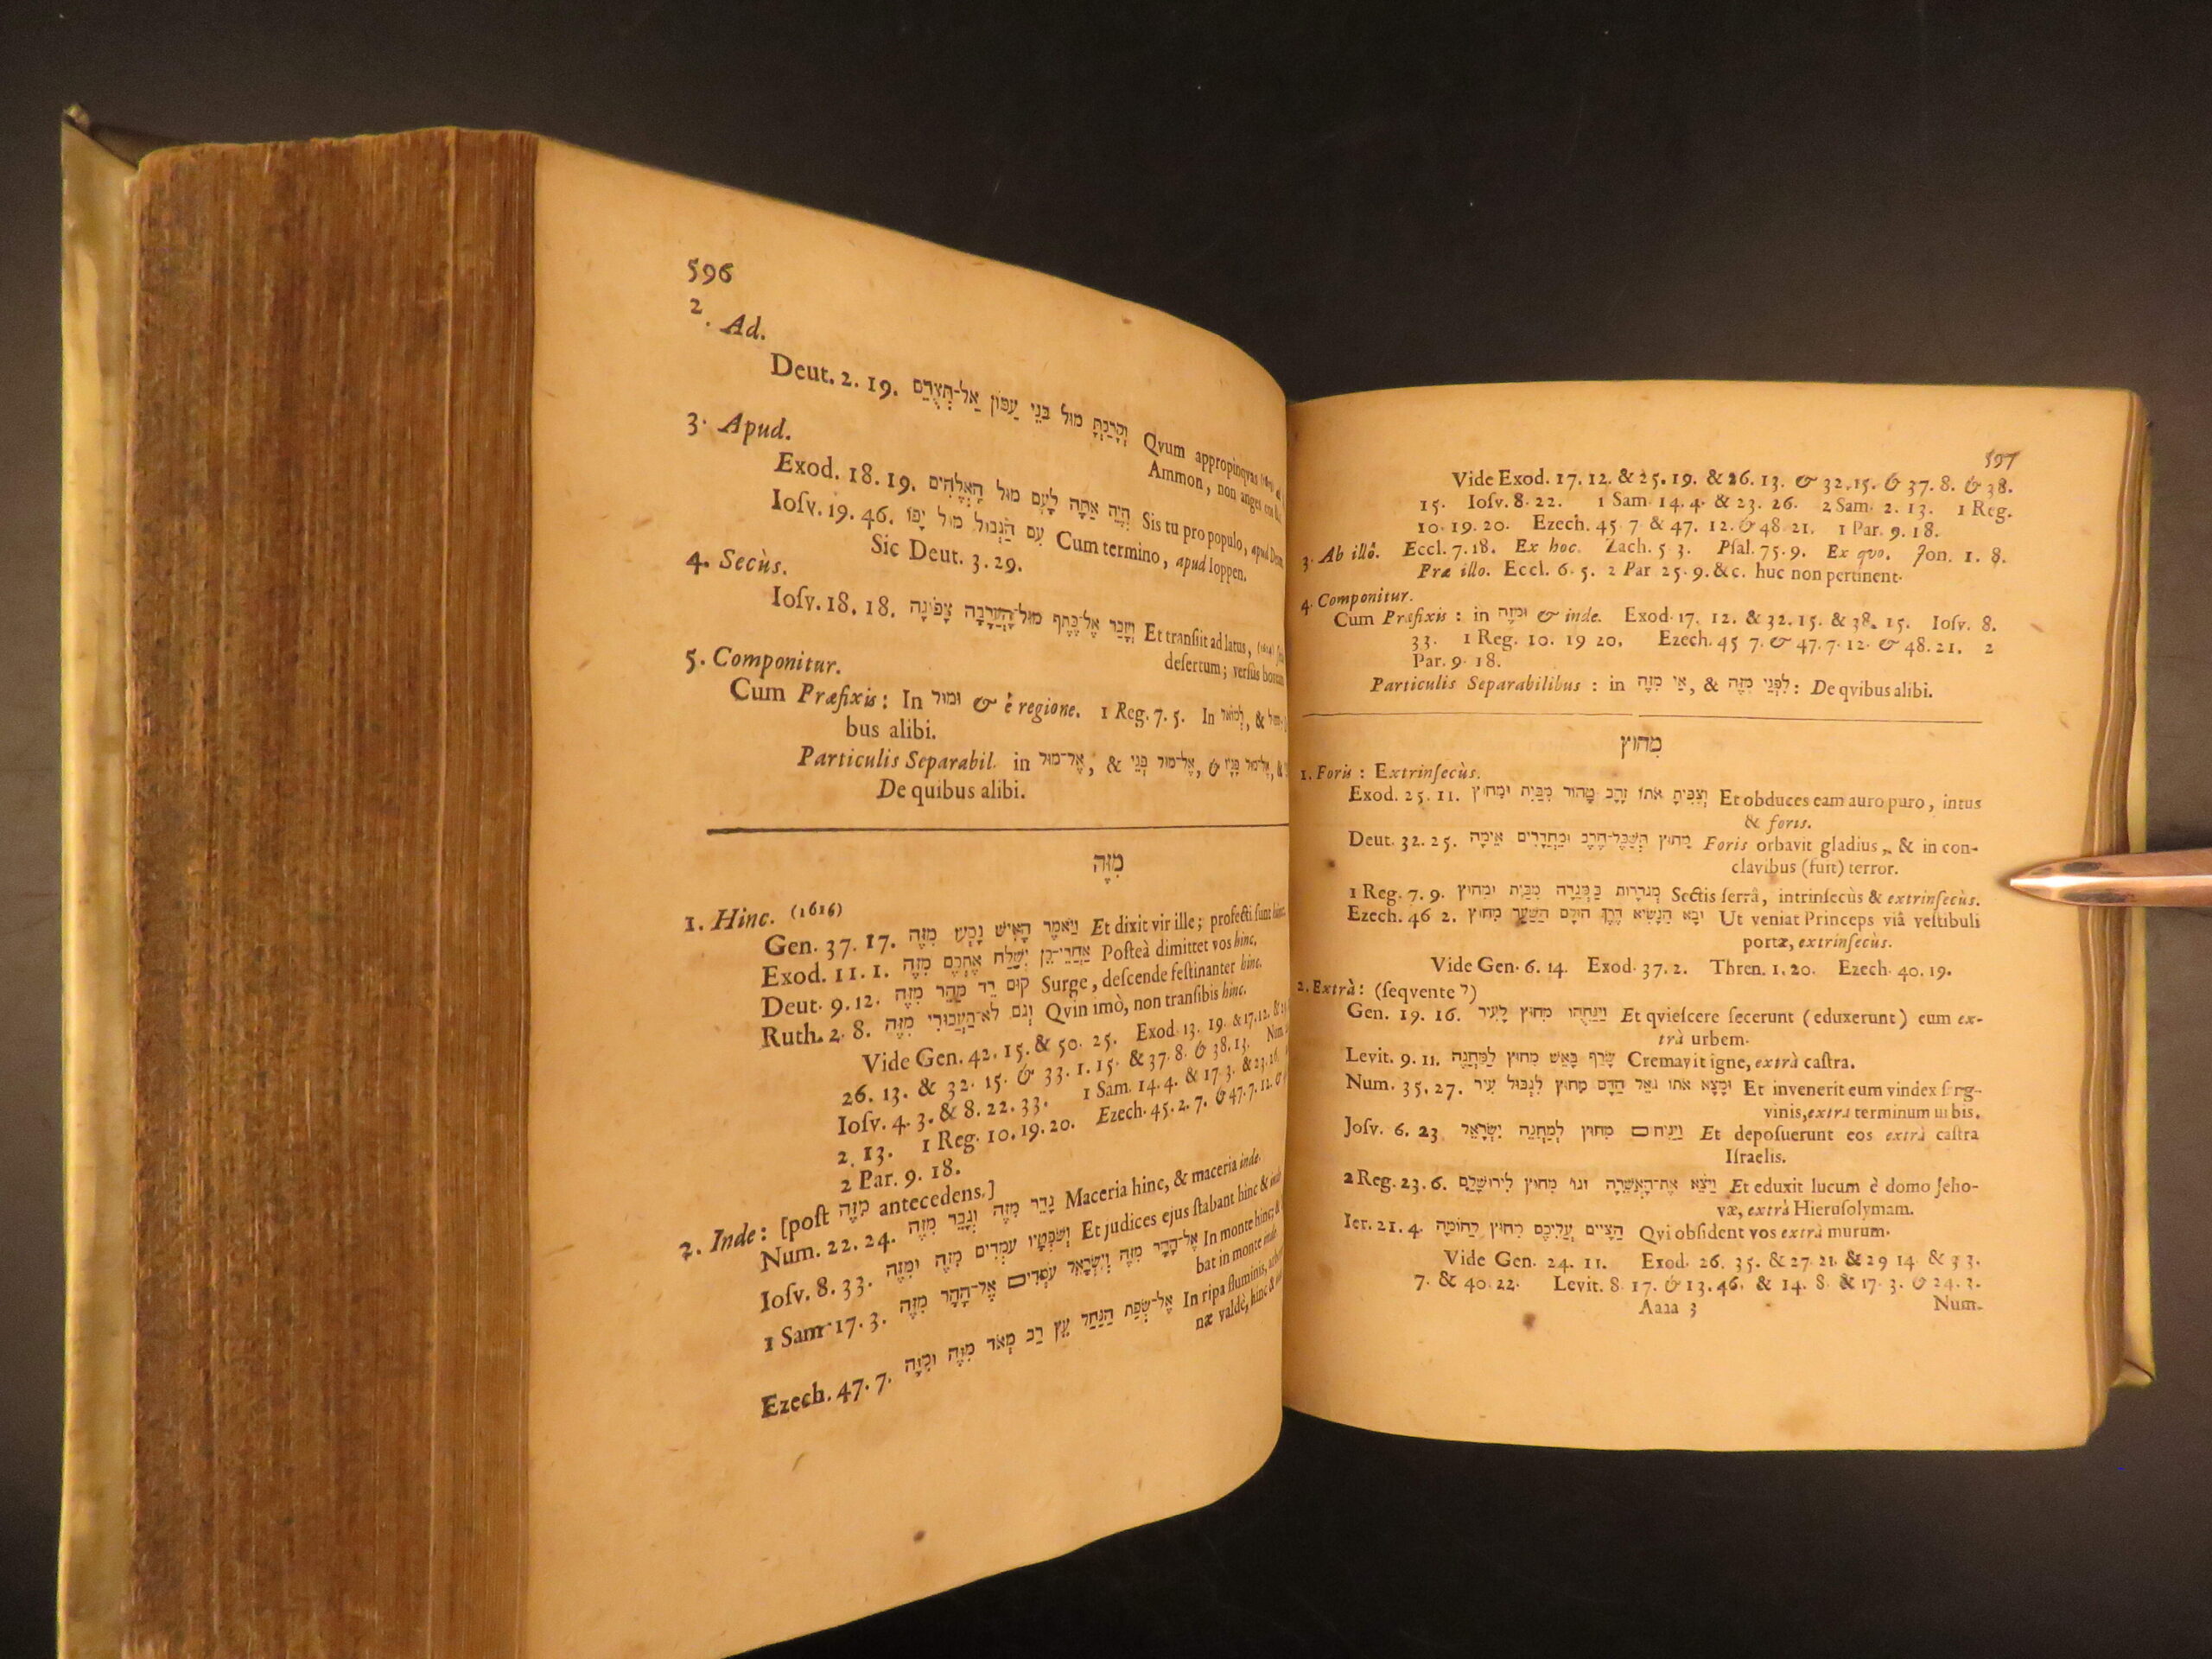 596
2. Ad.
Deut. 2. 19. וְקָרַבְתָּ מוּל בְּנֵי עַמּוֹן אַל־תְּצֻרֵם Qvum appropinqvas
Ammon, non anges
3. Apud.
Exod. 18. 19. הֱיֵה אַתָּה לָעָם מוּל הָאֱלֹהִים Sis tu pro populo, apud
Ioſv. 19. 46. עִם הַגְּבוּל מוּל יָפוֹ Cum termino, apud Ioppen.
Sic Deut. 3. 29.
4. Secùs.
Ioſv. 18. 18. וְעָבַר אֶל־כֶּתֶף מוּל־הָעֲרָבָה צָפוֹנָה Et tranſiit ad latus,
deſertum; verſùs
5. Componitur.
Cum Præfixis: In וּמוּל & è regione. 1 Reg. 7. 5. In לְמוֹאל, &
bus alibi.
Particulis Separabil. in אֶל־מוּל, & אֶל־מוּל פְּנֵי, &
De quibus alibi.
מִזֶּה
1. Hinc. (1616)
Gen. 37. 17. וַיֹּאמֶר הָאִישׁ נָסְעוּ מִזֶּה Et dixit vir ille; profecti ſunt hinc.
Exod. 11. 1. אַחֲרֵי־כֵן יְשַׁלַּח אֶתְכֶם מִזֶּה Poſteà dimittet vos hinc.
Deut. 9. 12. קוּם רֵד מַהֵר מִזֶּה Surge, deſcende feſtinanter hinc.
Ruth. 2. 8. וְגַם לֹא־תַעֲבוּרִי מִזֶּה Qvin imò, non tranſibis hinc.
Vide Gen. 42. 15. & 50. 25. Exod. 13. 19. & 17. 12. &
26. 13. & 32. 15. & 33. 1. 15. & 37. 8. & 38. 13.
Ioſv. 4. 3. & 8. 22. 33. 1 Sam. 14. 4. & 17. 3. & 23. 26.
2. 13. 1 Reg. 10. 19. 20. Ezech. 45. 2. 7. & 47. 7. 12. &
2 Par. 9. 18.
2. Inde: [poſt מִזֶּה antecedens.]
Num. 22. 24. גָּדֵר מִזֶּה וְגָדֵר מִזֶּה Maceria hinc, & maceria inde.
Ioſv. 8. 33. וְשֹׁפְטָיו עֹמְדִים מִזֶּה וּמִזֶּה Et judices ejus ſtabant hinc &
1 Sam. 17. 3. אֶל־הָהָר מִזֶּה וְיִשְׂרָאֵל עֹמְדִים אֶל־הָהָר מִזֶּה In monte hinc;
bat in monte
Ezech. 47. 7. אֶל־שְׂפַת הַנַּחַל עֵץ רַב מְאֹד מִזֶּה וּמִזֶּה In ripa fluminis,
næ valdè, hinc &
597
Vide Exod. 17. 12. & 25. 19. & 26. 13. & 32. 15. & 37. 8. & 38.
15. Ioſv. 8. 22. 1 Sam. 14. 4. & 23. 26. 2 Sam. 2. 13. 1 Reg.
10. 19. 20. Ezech. 45. 7. & 47. 12. & 48. 21. 1 Par. 9. 18.
3. Ab illô. Eccl. 7. 18. Ex hoc. Zach. 5. 3. Pſal. 75. 9. Ex qvo. Jon. 1. 8.
Præ illo. Eccl. 6. 5. 2 Par. 25. 9. &c. huc non pertinent.
4. Componitur.
Cum Præfixis: in וּמִזֶּה & inde. Exod. 17. 12. & 32. 15. & 38. 15. Ioſv. 8.
33. 1 Reg. 10. 19 20. Ezech. 45 7. & 47. 7. 12. & 48. 21. 2
Par. 9. 18.
Particulis Separabilibus: in אֵי מִזֶּה, & לִפְנֵי מִזֶּה: De qvibus alibi.
מִחוּץ
1. Foris: Extrinſecùs.
Exod. 25. 11. וְצִפִּיתָ אֹתוֹ זָהָב טָהוֹר מִבַּיִת וּמִחוּץ Et obduces eam auro puro, intus
& foris.
Deut. 32. 25. מִחוּץ תְּשַׁכֶּל־חֶרֶב וּמֵחֲדָרִים אֵימָה Foris orbavit gladius, & in con-
clavibus (fuit) terror.
1 Reg. 7. 9. מְגֹרָרוֹת בַּמְּגֵרָה מִבַּיִת וּמִחוּץ Sectis ſerrâ, intrinſecùs & extrinſecùs.
Ezech. 46 2. יבָא הַנָּשִׂיא דֶּרֶךְ אוּלָם הַשַּׁעַר מִחוּץ Ut veniat Princeps viâ veſtibuli
portæ, extrinſecùs.
Vide Gen. 6. 14. Exod. 37. 2. Thren. 1. 20. Ezech. 40. 19.
2. Extrà: (ſeqvente ל)
Gen. 19. 16. וַיַּנִּחֻהוּ מִחוּץ לָעִיר Et qvieſcere fecerunt (eduxerunt) eum ex-
trà urbem.
Levit. 9. 11. שָׂרַף בָּאֵשׁ מִחוּץ לַמַּחֲנֶה Cremavit igne, extrà caſtra.
Num. 35. 27. וּמָצָא אֹתוֹ גֹּאֵל הַדָּם מִחוּץ לִגְבוּל עִיר Et invenerit eum vindex ſang-
vinis, extrà terminum urbis.
Joſv. 6. 23 וַיַּנִּיחוּם מִחוּץ לְמַחֲנֵה יִשְׂרָאֵל Et depoſuerunt eos extrà caſtra
Iſraelis.
2 Reg. 23. 6. וַיֹּצֵא אֶת־הָאֲשֵׁרָה וגו מִחוּץ לִירוּשָׁלִַם Et eduxit lucum è domo Jeho-
væ, extrà Hieroſolymam.
Ier. 21. 4. הַצָּרִים עֲלֵיכֶם מִחוּץ לַחוֹמָה Qvi obſident vos extrà murum.
Vide Gen. 24. 11. Exod. 26. 35. & 27 21. & 29 14. & 33.
7. & 40. 22. Levit. 8. 17. & 13. 46. & 14. 8. & 17. 3. & 24. 3.
Aaaa 3 Num.